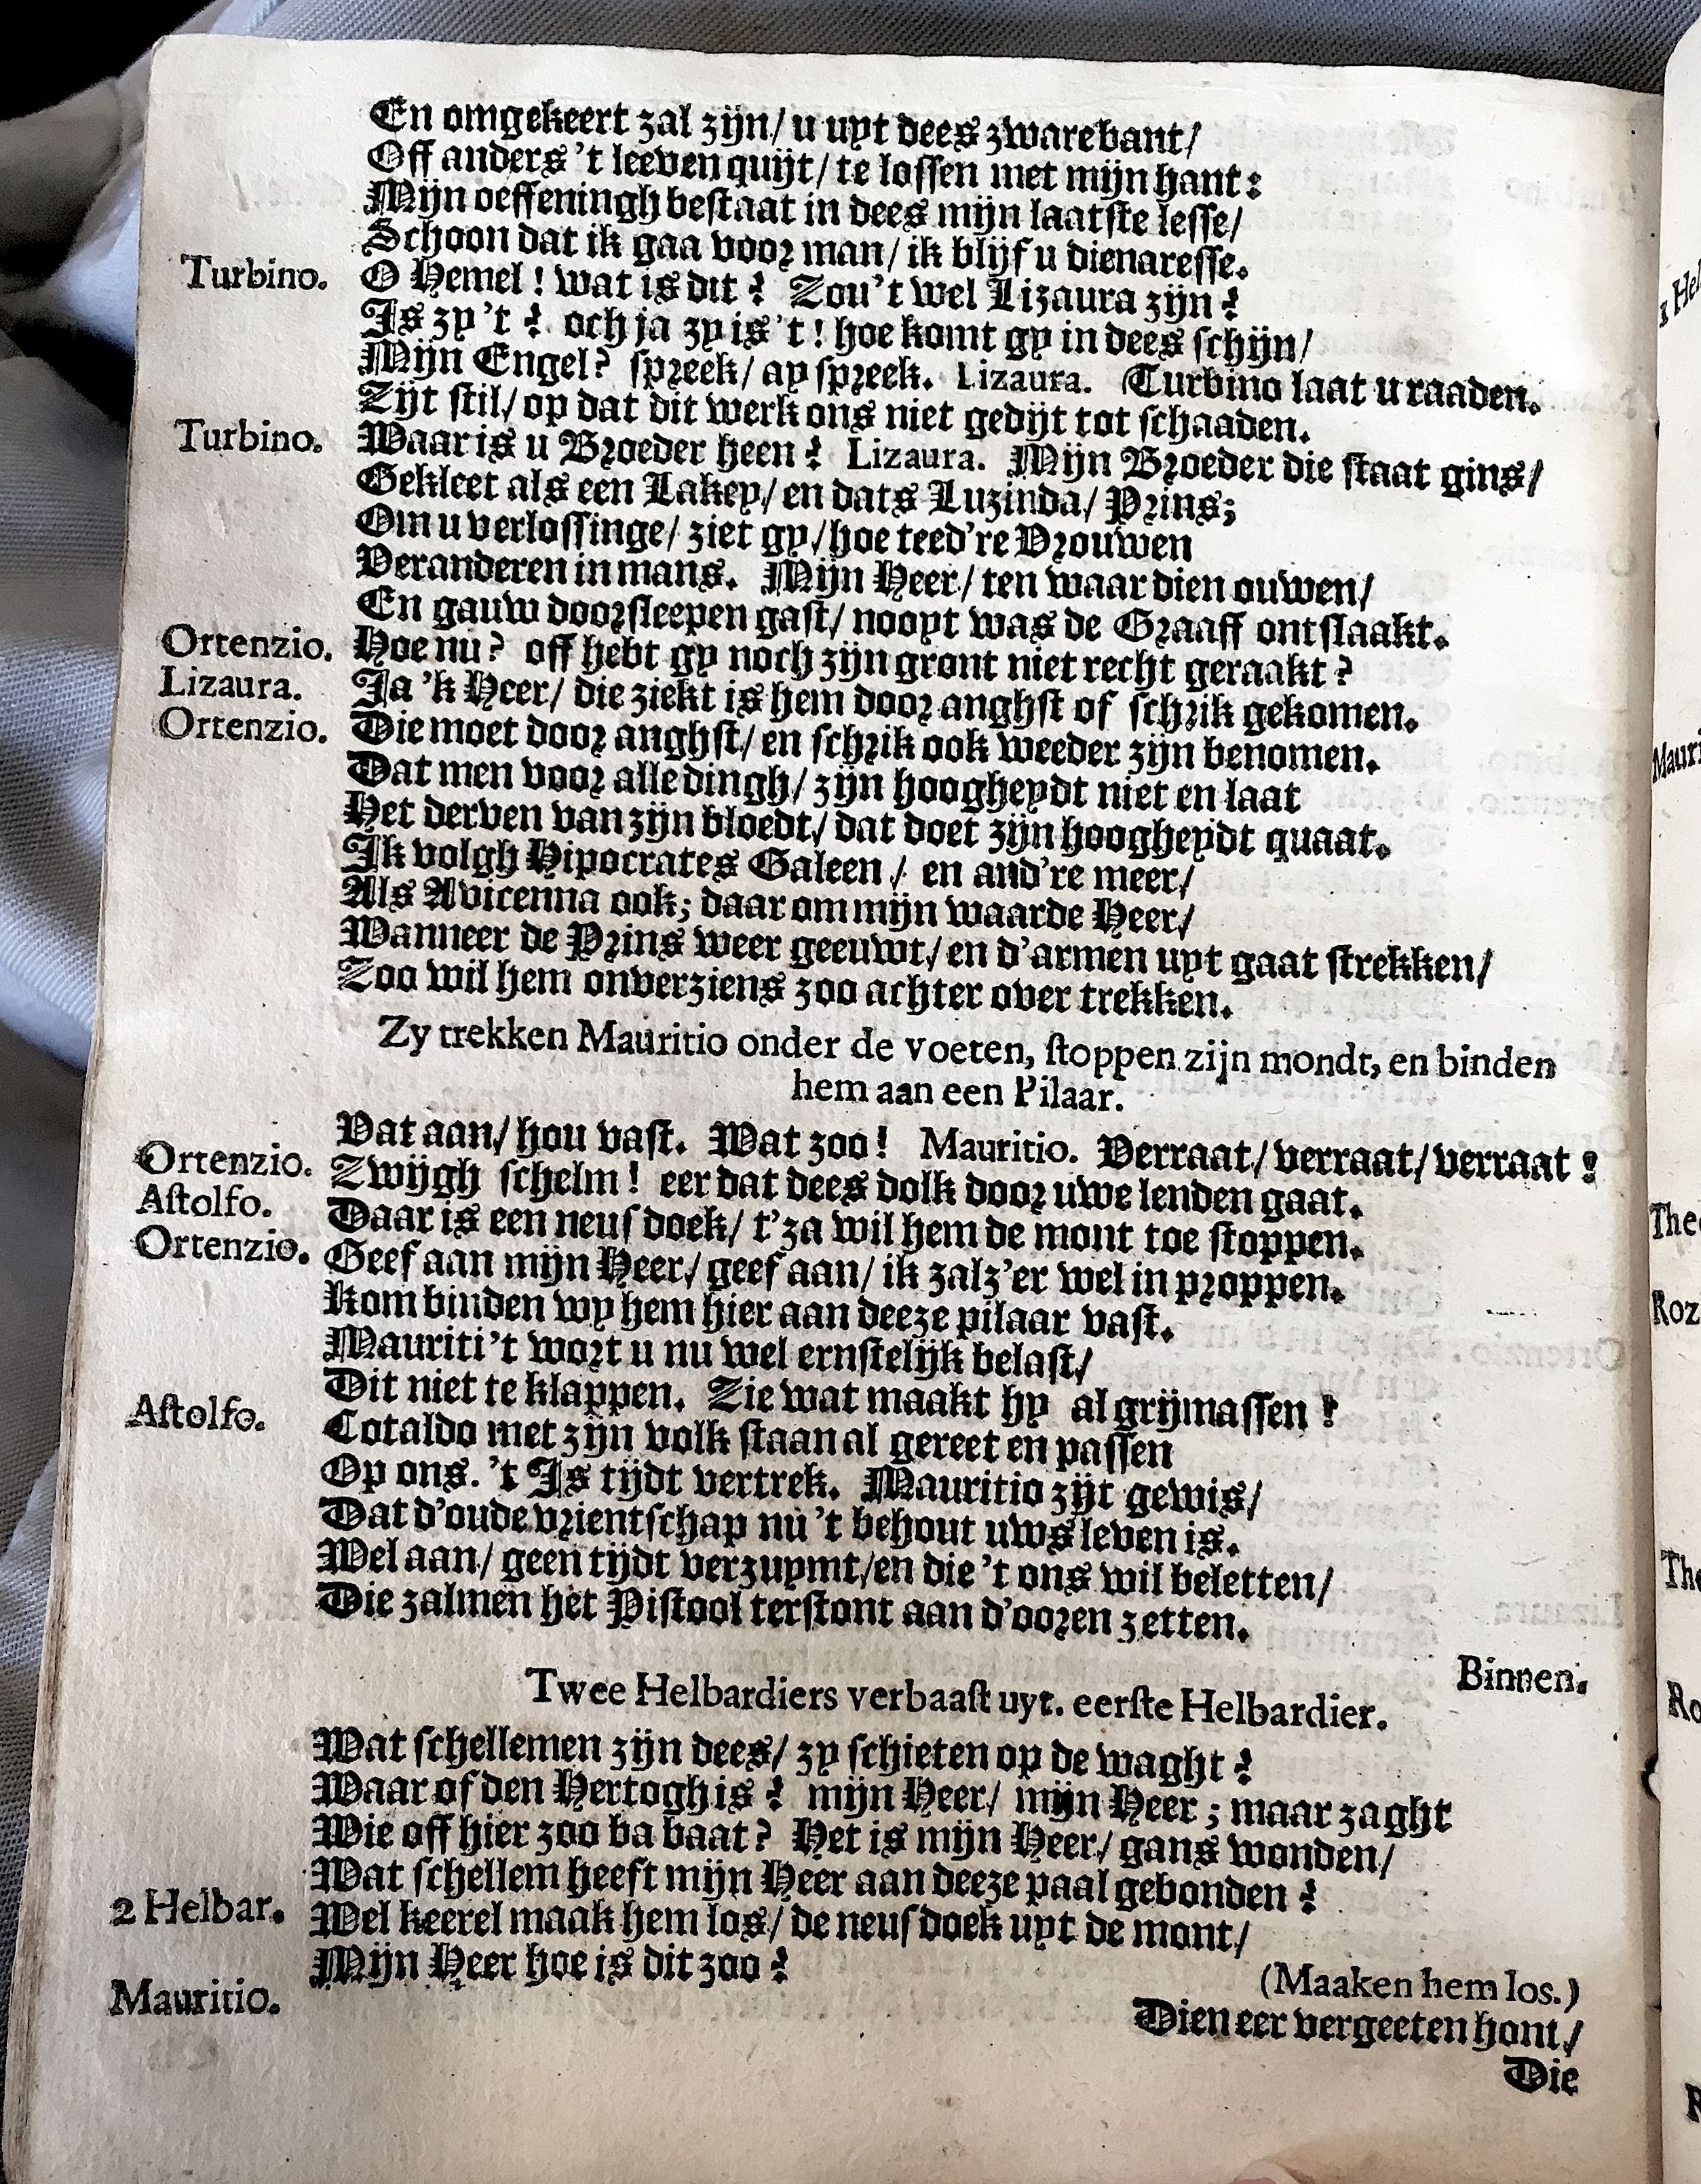 En omgekeert zal zijn/ u uyt dees zware bant/
Off anders 't leeven quijt/ te lossen met mijn hant:
Mijn oeffeningh bestaat in dees mijn laatste lesse/
Schoon dat ik gaa voor man/ ik blijf u dienaresse.
Turbino. O Hemel! wat is dit? Zou't wel Lizaura zijn?
Is zy't? och ja zy is't! hoe komt gy in dees schijn/
Mijn Engel? spreek/ ay spreek. Lizaura. (Turbino laat u raaden.
Zijt stil/ op dat dit werk ons niet gedijt tot schaaden.
Turbino. Waar is u Broeder heen? Lizaura. Mijn Broeder die staat gins/
Gekleet als een Lakey/ en dats Luzinda/ Prins;
Om u verlossinge/ ziet gy/ hoe teed're Vrouwen
Veranderen in mans. Mijn Heer/ ten waar dien ouwen/
En gauw doorsleepen gast/ nooyt was de Graaff ontslaakt.
Ortenzio. Hoe nu? off hebt gy noch zijn gront niet recht geraakt?
Lizaura. Ja 'k Heer/ die ziekt is hem door anghst of schrik gekomen.
Ortenzio. Die moet door anghst/ en schrik ook weeder zijn benomen.
Dat men voor alle dingh/ zijn hoogheydt niet en laat
Het derven van zijn bloedt/ dat doet zijn hoogheydt quaat.
Ik volgh Hipocrates Galeen/ en and're meer/
Als Avicenna ook; daarom mijn waarde Heer/
Wanneer de Prins weer geeuwt/ en d'armen uyt gaat strekken/
Zoo wil hem onverziens zoo achter over trekken.
Zy trekken Mauritio onder de voeten, stoppen zijn mondt, en binden
hem aan een Pilaar.
Vat aan/ hou vast. Wat zoo! Mauritio. Verraat/ verraat/ verraat!
Ortenzio. Zwijgh schelm! eer dat dees dolk door uwe lenden gaat.
Astolfo. Daar is een neusdoek/ t'za wil hem de mont toe stoppen.
Ortenzio. Geef aan mijn Heer/ geef aan/ ik zalz'er wel in proppen.
Kom binden wy hem hier aan deeze pilaar vast.
Mauriti't wort u nu wel ernstelijk belast/
Dit niet te klappen. Zie wat maakt hy al grijmassen!
Astolfo. Cotaldo met zijn volk staan al gereet en passen
Op ons. 't Is tijdt vertrek. Mauritio zijt gewis/
Dat d'oude vrientschap nu 't behout uws leven is.
Wel aan/ geen tijdt verzuymt/ en die 't ons wil beletten/
Die zalmen het Pistool terstont aan d'ooren zetten.
Binnen.
Twee Helbardiers verbaast uyt. eerste Helbardier.
Wat schellemen zijn dees/ zy schieten op de waght?
Waar of den Hertogh is? mijn Heer/ mijn Heer; maar zaght
Wie off hier zoo ba baat? Het is mijn Heer/ gans wonden/
Wat schellem heeft mijn Heer aan deeze paal gebonden?
2 Helbar. Wel keerel maak hem los/ de neusdoek uyt de mont/
Mijn Heer hoe is dit zoo?
(Maaken hem los.)
Mauritio. Dien eer vergeeten hont/
Die